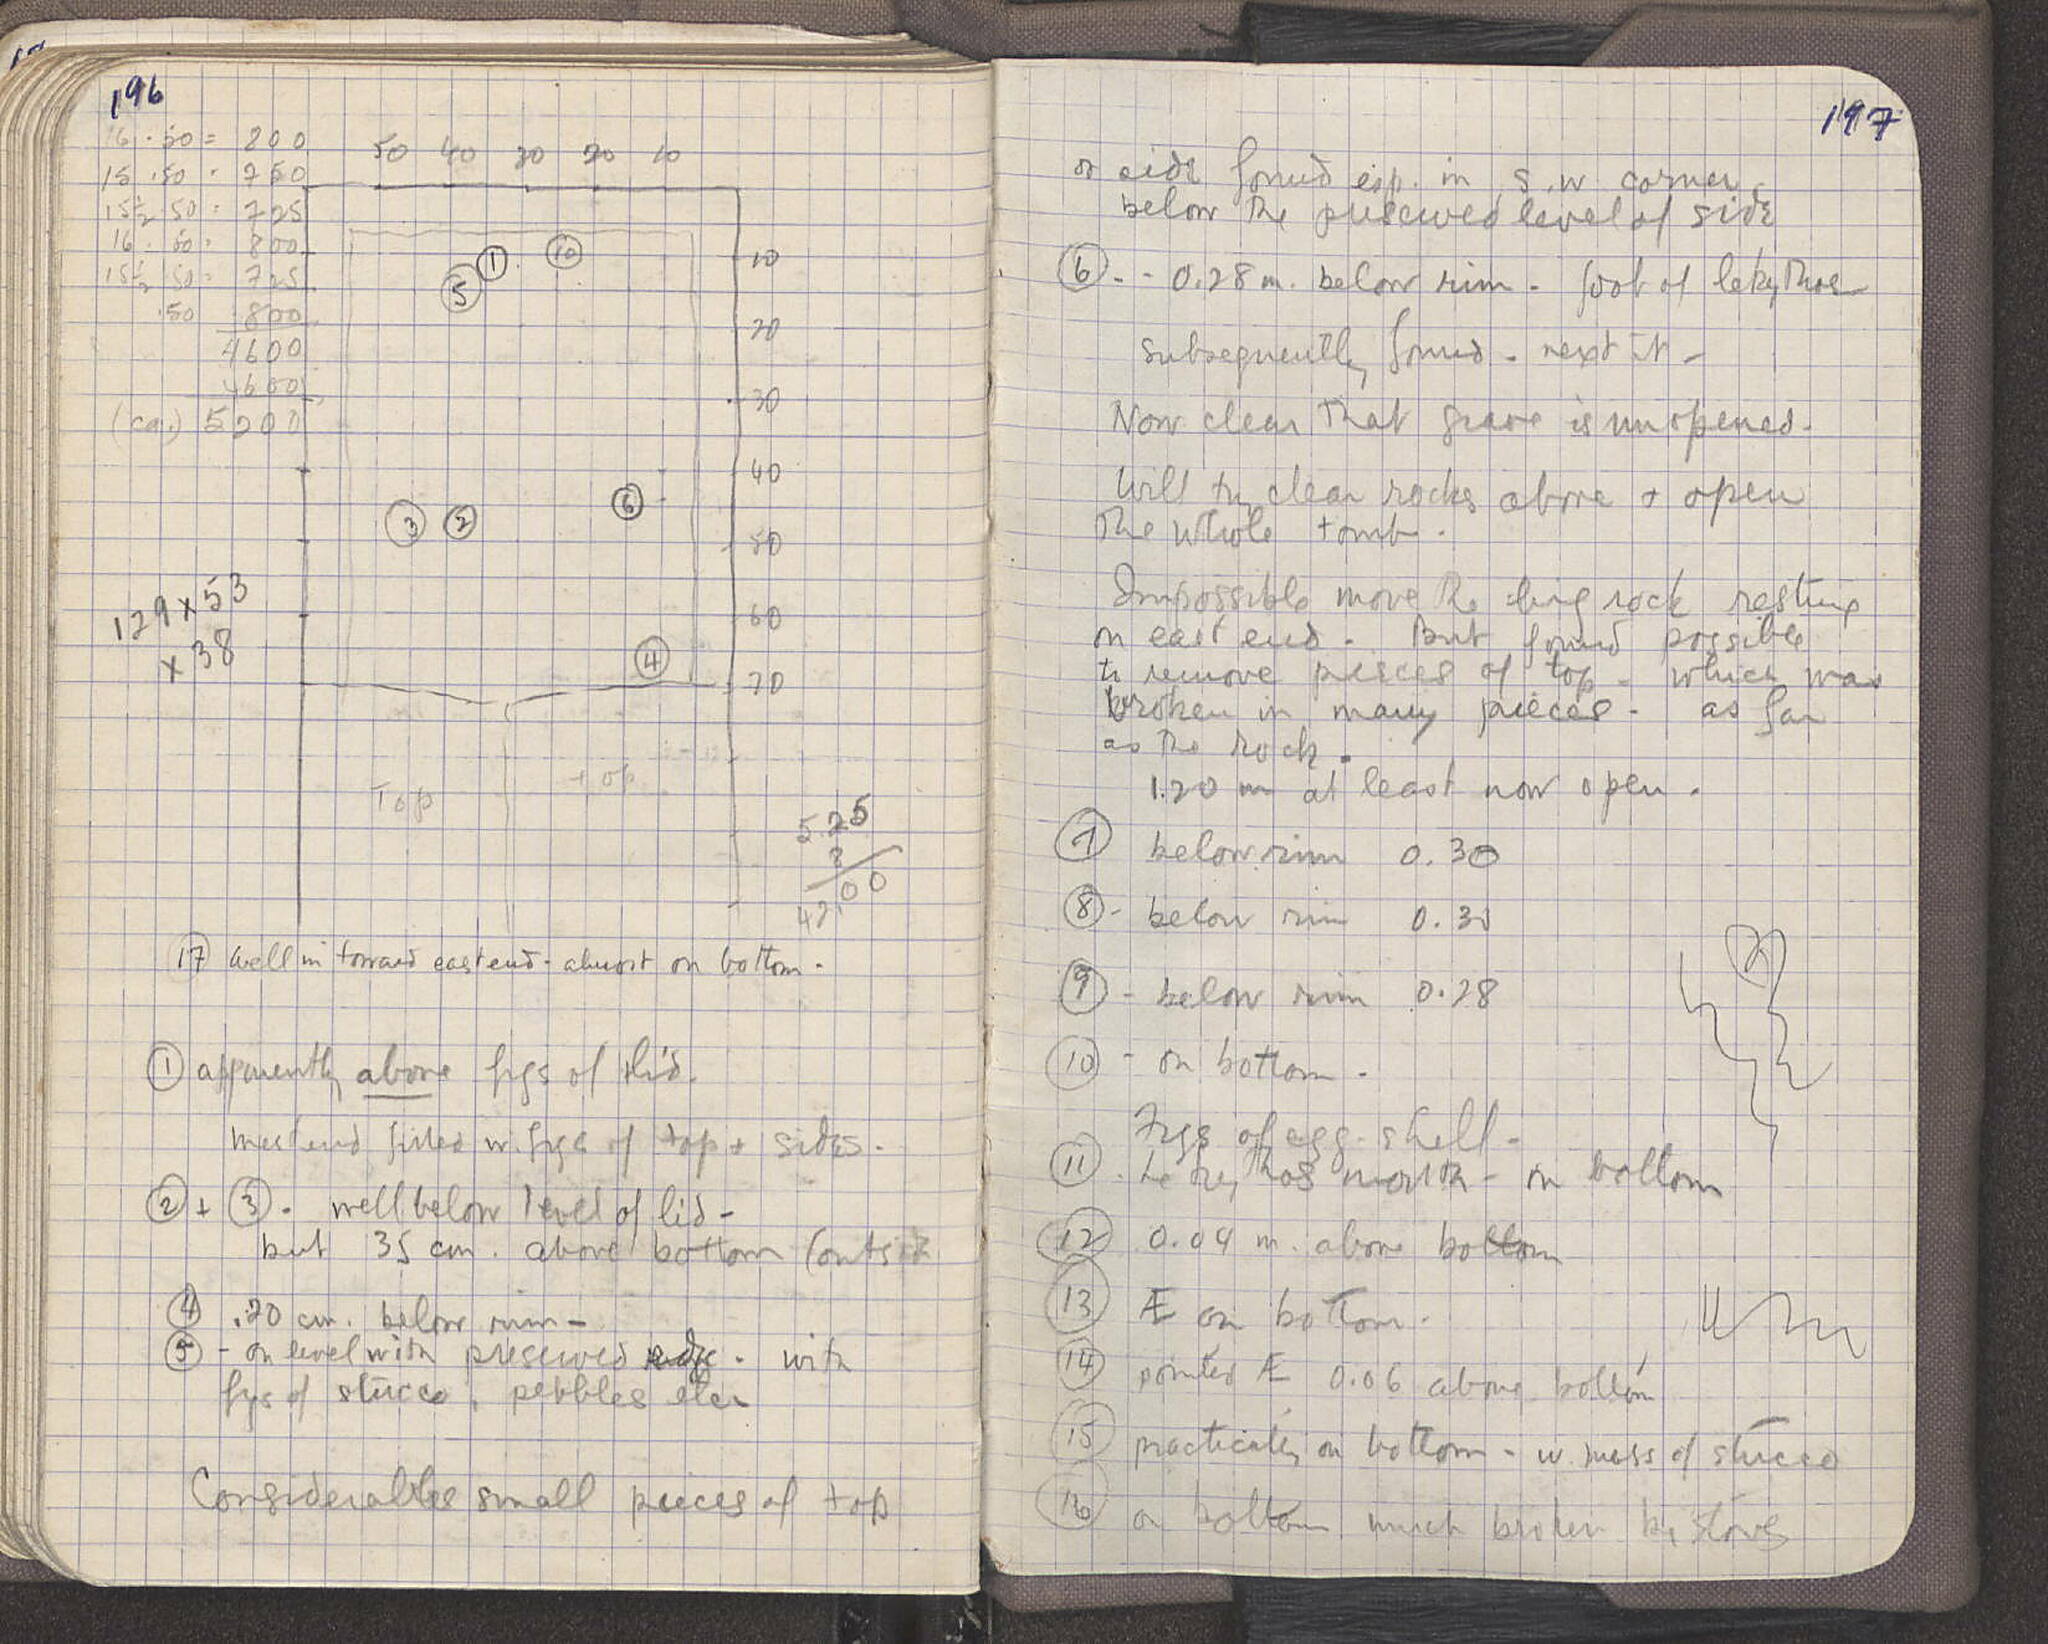 196
16 . 50 = 800
15 . 50 . 750
15½ . 50 = 725
16 . 50 . 800
15½ . 50 = 725
.50 800
4600
4600
(ca.) 5200
50 40 30 20 10
1 10
5
10
20
30
40
50
60
70
3 2 6
4
129 x 53
x 38
Top top
5.25
8
42.00
17 well in toward east end - almost on bottom -
1 apparently above fgs of lid.
West end filled w. fgs of top + sides -
2 + 3 - well below level of lid -
but 35 cm. above bottom (outside
4 .20 cm. below rim -
5 - on level with preserved edge - with
fgs of stucco, pebbles
Considerable small pieces of top
197
or side found esp. in S.W corner
below the preserved level of side
6 - - 0.28 m. below rim - foot of lekythos
subsequently found - next it -
Now clear that grave is unopened -
Will try clear rocks above + open
the whole tomb -
Impossible move the big rock resting
on east end - But found possible
to remove pieces of top - which was
broken in many pieces - as far
as the rock.
1.20 m at least now open -
7 below rim 0.30
8 - below rim 0.30
9 - below rim 0.28
10 - on bottom -
Fgs of egg-shell -
11 - Lekythos mouth - on bottom
12 0.04 m. above bottom
13 Æ on bottom -
14 pointed Æ 0.06 above bottom
15 practically on bottom - w. mass of stucco
16 on bottom much broken by stones